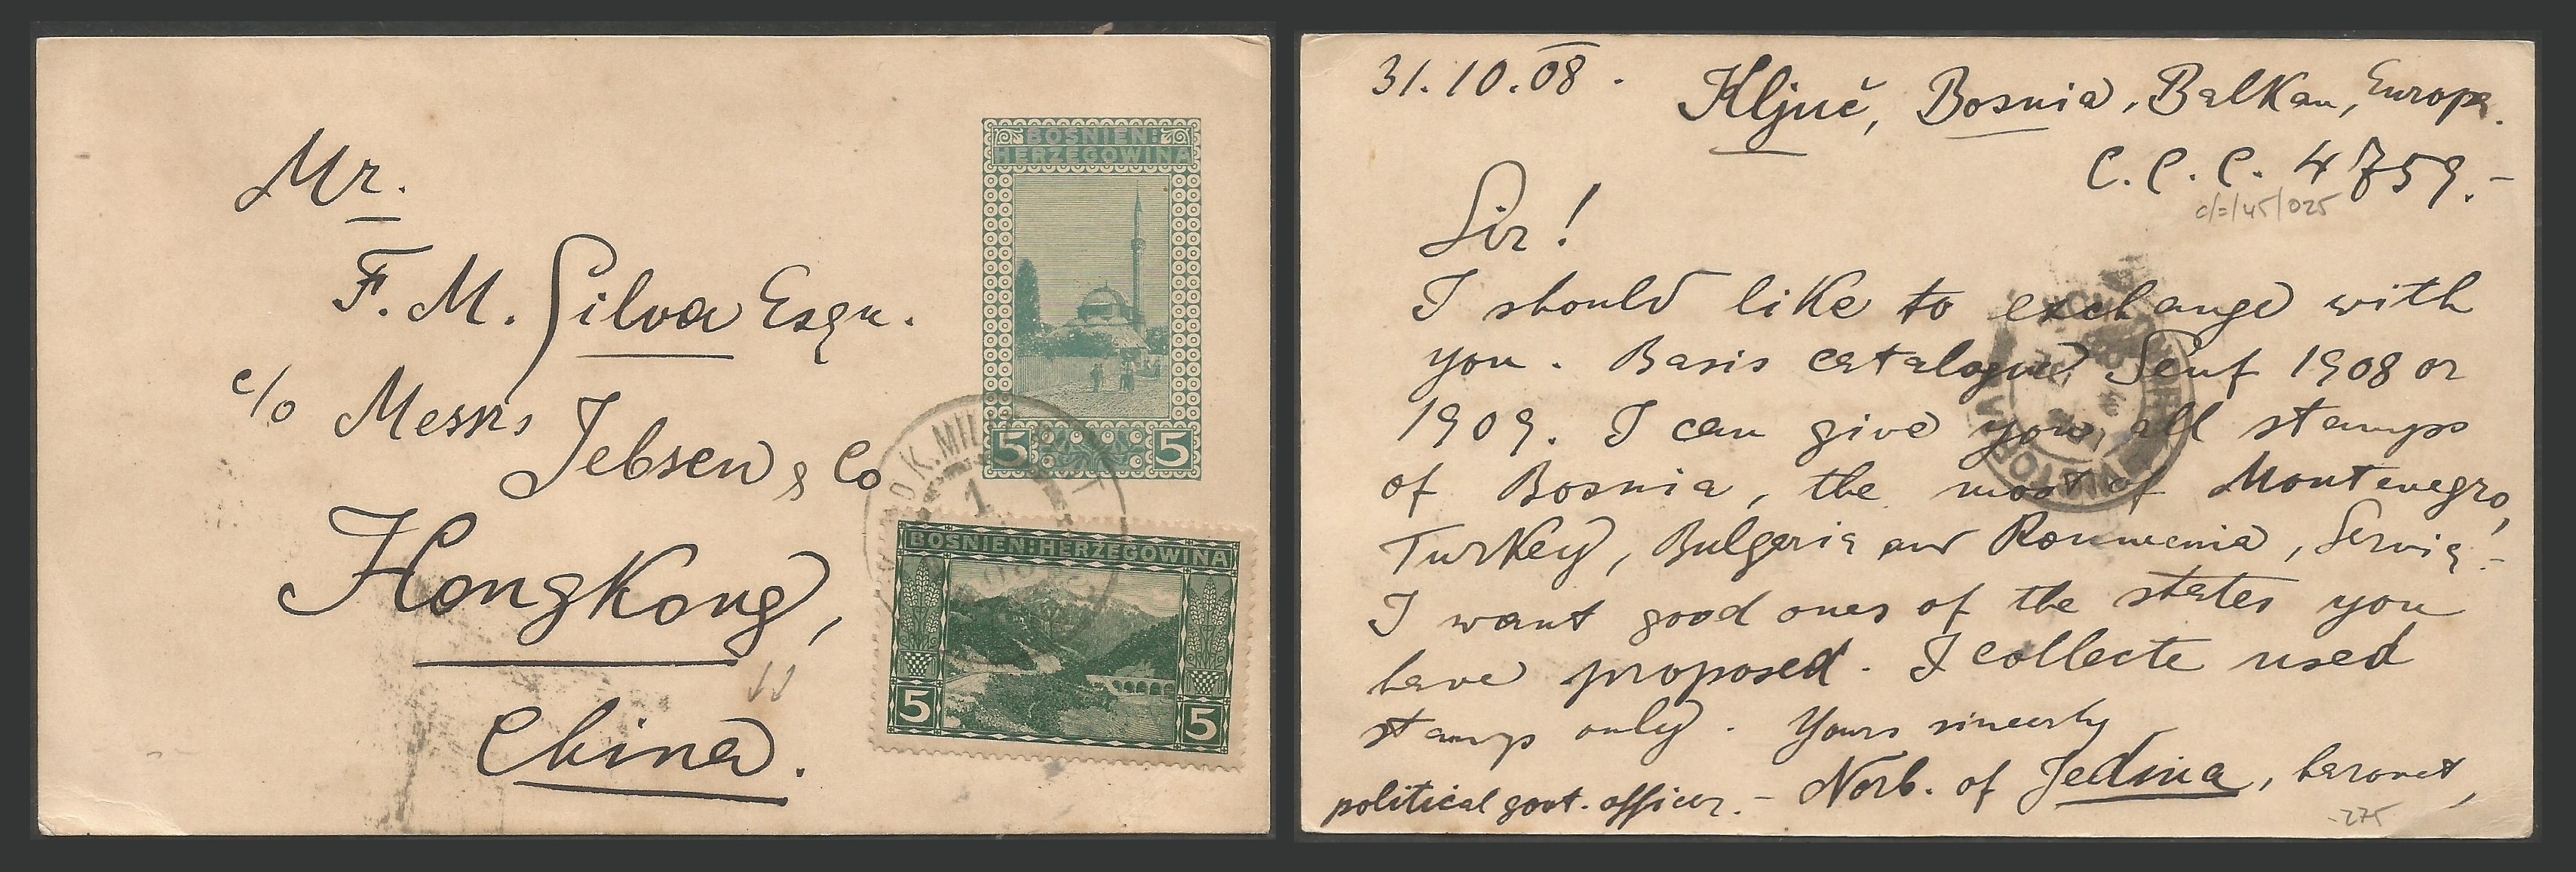 Mr.
F. M. Silva Esqu.
c/o Messrs
Jebsen & Co
HongKong,
China.
BOSNIEN:
HERZEGOWINA
5 5
K. MIL
1
BOSNIEN:HERZEGOWINA
5 5
31.10.08.
Ključ, Bosnia, Balkan, Europa.
C.C.C. 4759.-
Sir!
I should like to exchange with
you. Basis catalogue Senf 1908 or
1909. I can give you all stamps
of Bosnia, the most of Montenegro,
Turkey, Bulgaria and Roumania, Servia.-
I want good ones of the states you
have proposed. I collecte used
stamps only. Yours sincerly
Norb. of Jedina, baronet,
political govt. officer.-
VICTORIA
-275